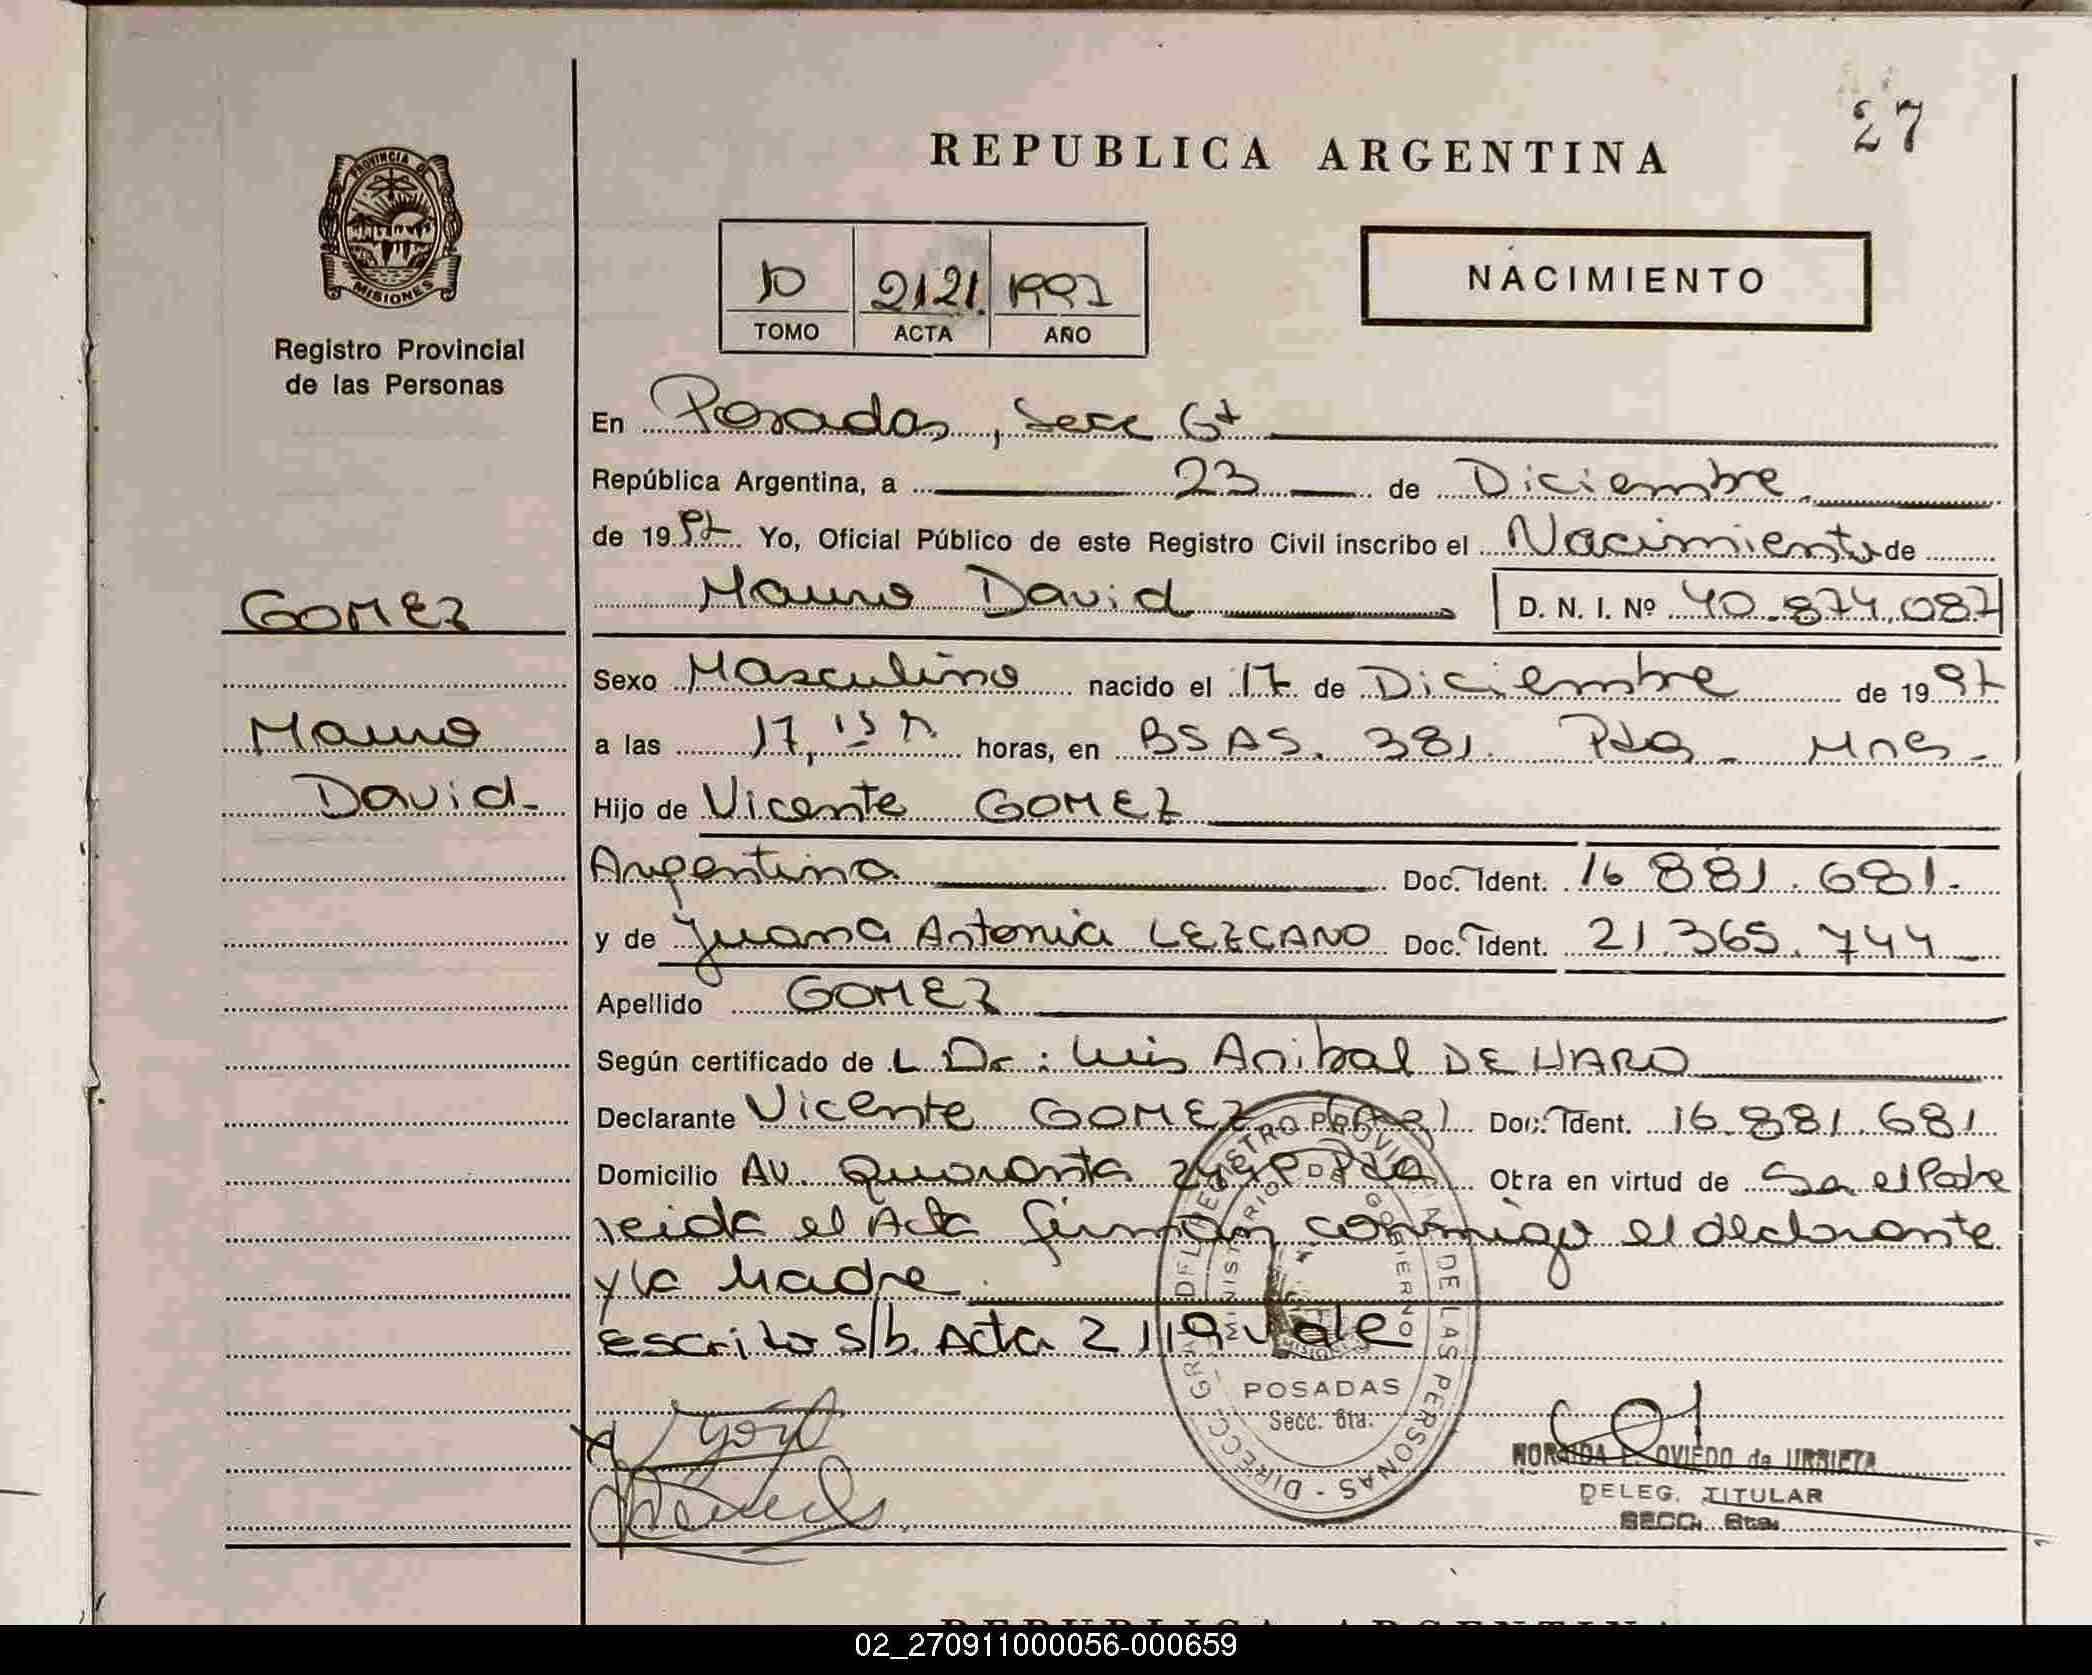 27
REPUBLICA ARGENTINA
PROVINCIA DE
MISIONES
Registro Provincial
de las Personas
10 2121. 1997
TOMO ACTA AÑO
NACIMIENTO
En Posadas, Secc 6ta
República Argentina, a 23 de Diciembre
de 1997 Yo, Oficial Público de este Registro Civil inscribo el Nacimiento de
Mauro David D. N. I. Nº 40.874.087
GOMEZ
Mauro
David-
Sexo Masculino nacido el 17 de Diciembre de 1997
a las 17,15 h horas, en BSAS. 381. Pdas Mnes-
Hijo de Vicente GOMEZ
Argentino Doc. Ident. 16 881.681.
y de Juana Antonia LEZCANO Doc. Ident. 21.365.744
Apellido GOMEZ
Según certificado de L Dr: Luis Anibal DE HARO
Declarante Vicente GOMEZ Doc. Ident. 16.881.681
Domicilio Av. Quaranta Pdas Obra en virtud de Ser el Padre
leida el Acta firman conmigo el declarante
y la Madre.
escrito s/b. Acta 2119 vale
DIRECC. GRAL. DEL REGISTRO PROVINCIAL DE LAS PERSONAS
MINISTERIO DE GOBIERNO
POSADAS
Secc. 6ta.
NORAIDA E. OVIEDO de URRIETA
DELEG. TITULAR
SECC. 6ta.
REPUBLICA ARGENTINA
02_270911000056-000659